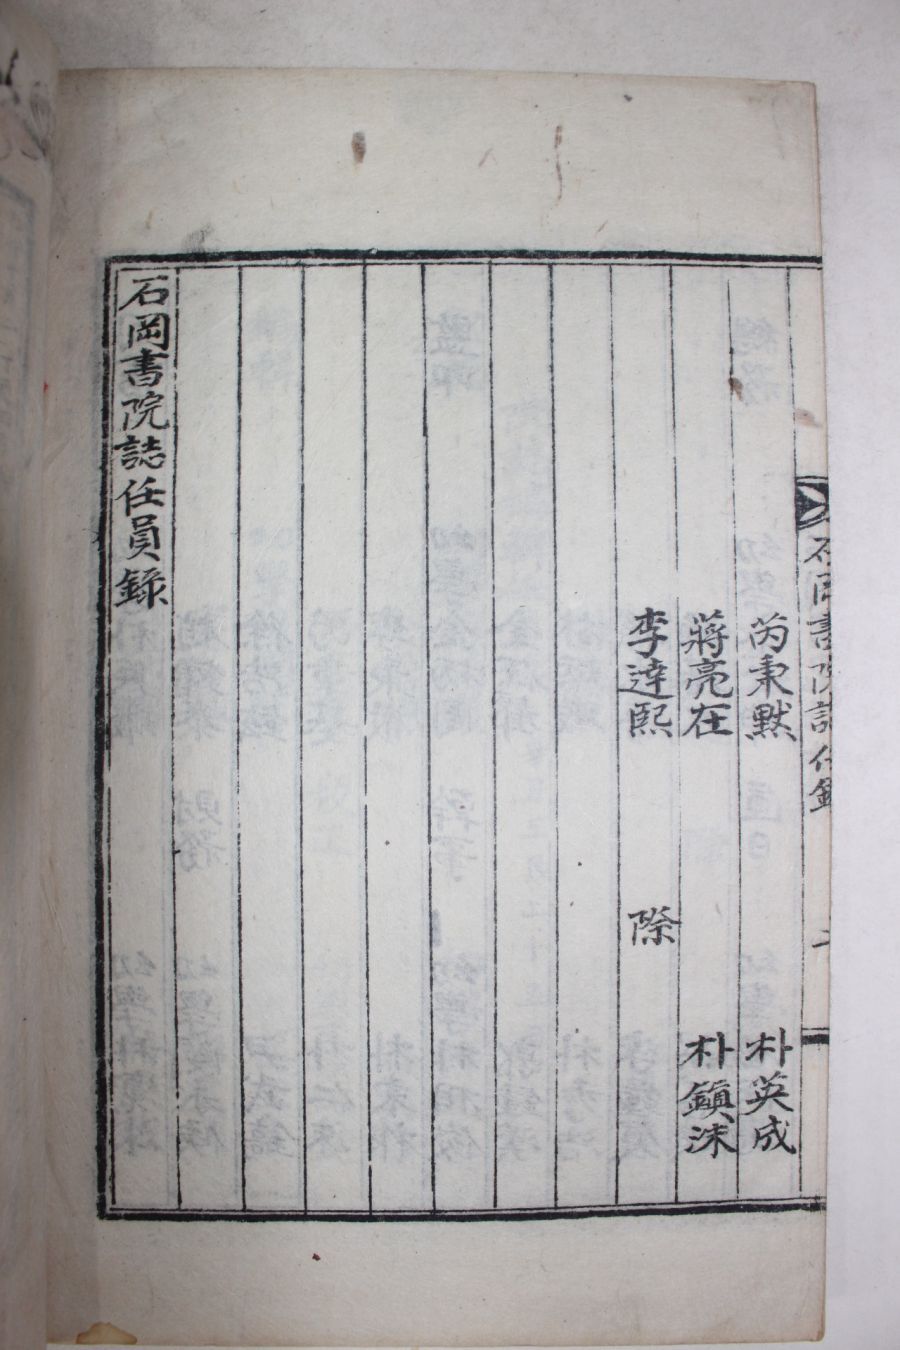 石岡書院誌任錄
芮秉默
朴英成
蔣亮在
朴鎭洡
李達熙
際
石岡書院誌任員錄